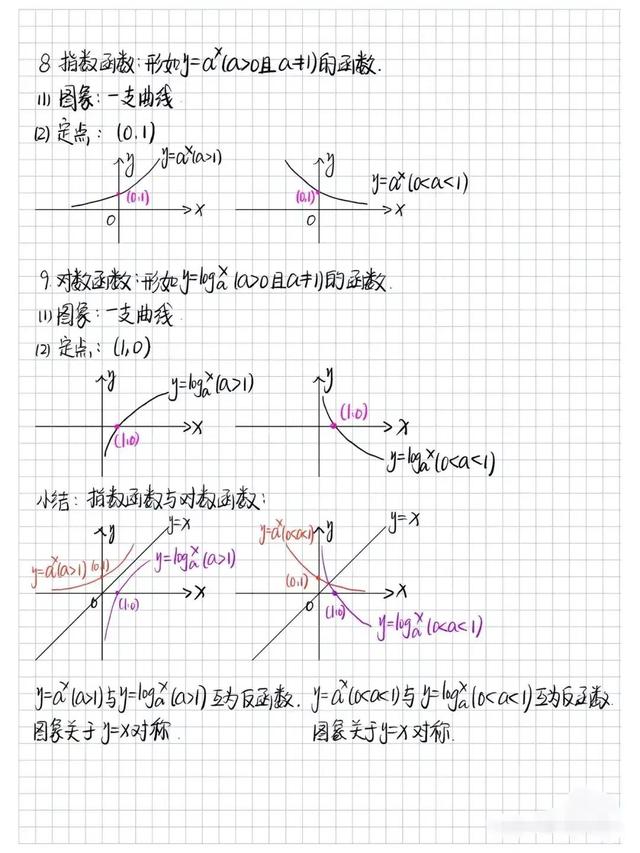 8 指数函数:形如y=aˣ(a>0且a≠1)的函数.
(1) 图象:一支曲线
(2) 定点:(0,1)
y y=aˣ(a>1) y
(0,1) (0,1) y=aˣ(0<a<1)
0 x 0 x
9.对数函数:形如y=logₐˣ(a>0且a≠1)的函数.
(1) 图象:一支曲线
(2) 定点:(1,0)
y y=logₐˣ(a>1) y
(1,0) x (1,0) x
y=logₐˣ(0<a<1)
小结:指数函数与对数函数:
y y=x y=aˣ(0<a<1) y y=x
y=aˣ(a>1) (0,1) y=logₐˣ(a>1) (0,1)
0 (1,0) x 0 (1,0) x
y=logₐˣ(0<a<1)
y=aˣ(a>1)与y=logₐˣ(a>1)互为反函数.
图象关于y=x对称.
y=aˣ(0<a<1)与y=logₐˣ(0<a<1)互为反函数
图象关于y=x对称.